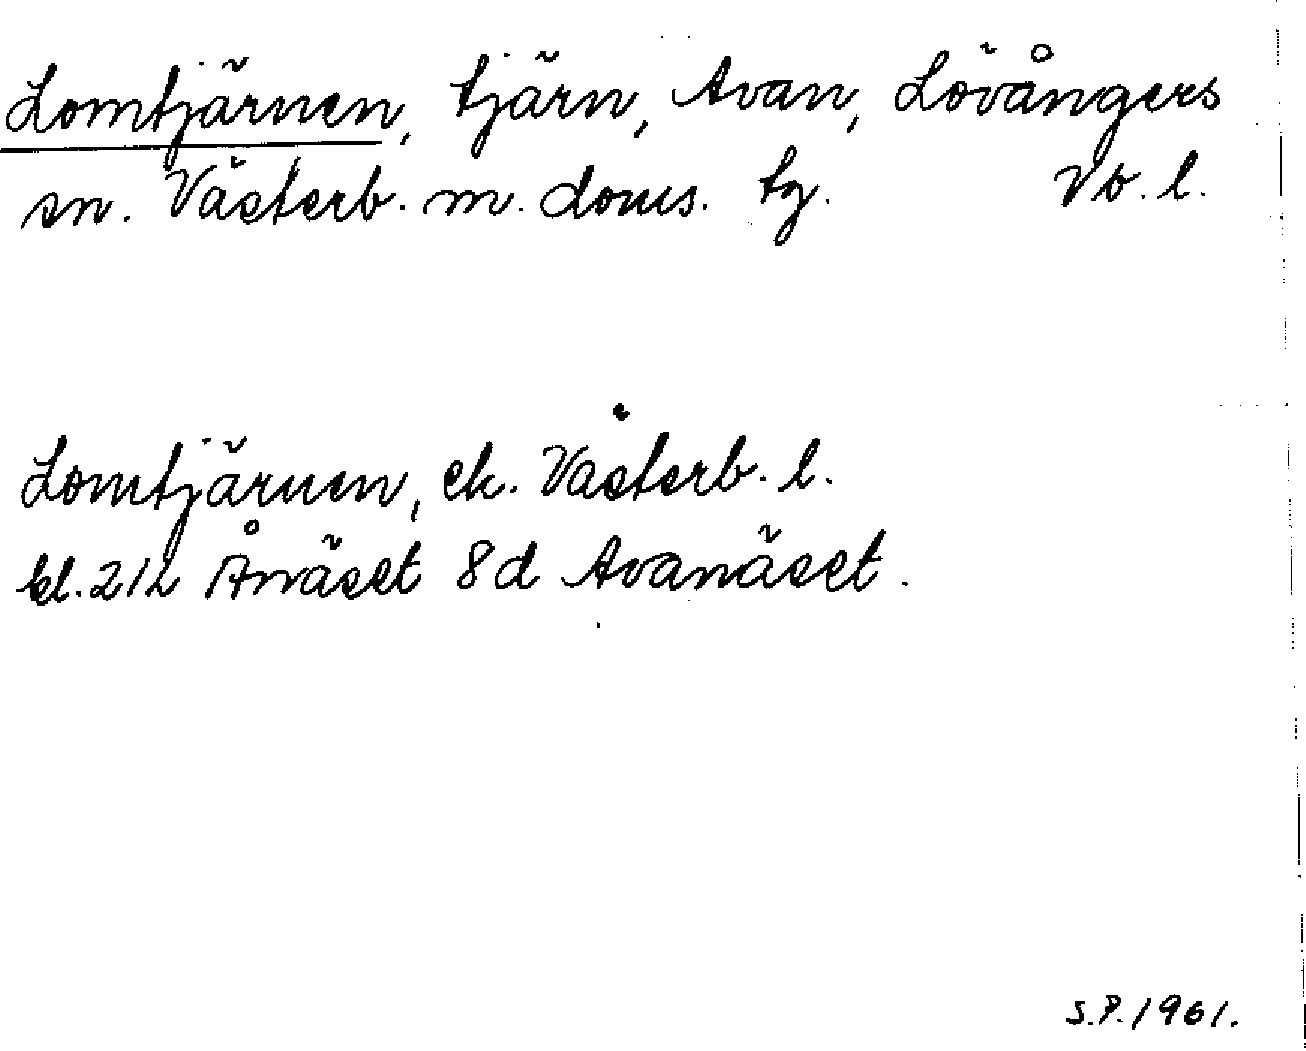 Lomtjärnen, tjärn, Avan, Lövångers
sn. Västerb. m. doms. tg. Vb. l.
Lomtjärnen, ek. Västerb. l.
bl. 21L Ånäset 8d Avanäset.
S.P. 1961.